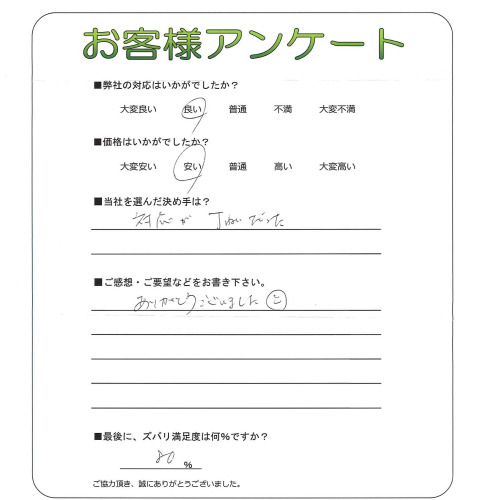 お客様アンケート
■弊社の対応はいかがでしたか？
大変良い 良い 普通 不満 大変不満
■価格はいかがでしたか？
大変安い 安い 普通 高い 大変高い
■当社を選んだ決め手は？
対応が丁ねいだった
■ご感想・ご要望などをお書き下さい。
ありがとうございました
■最後に、ズバリ満足度は何%ですか？
80 %
ご協力頂き、誠にありがとうございました。